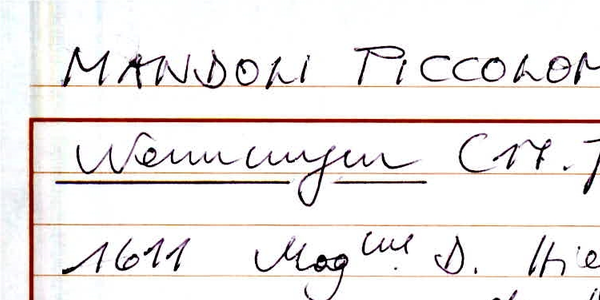 MANDOLI PICCOLOM
Wenningen (17. J
1611 Mag^cus. D. Hie